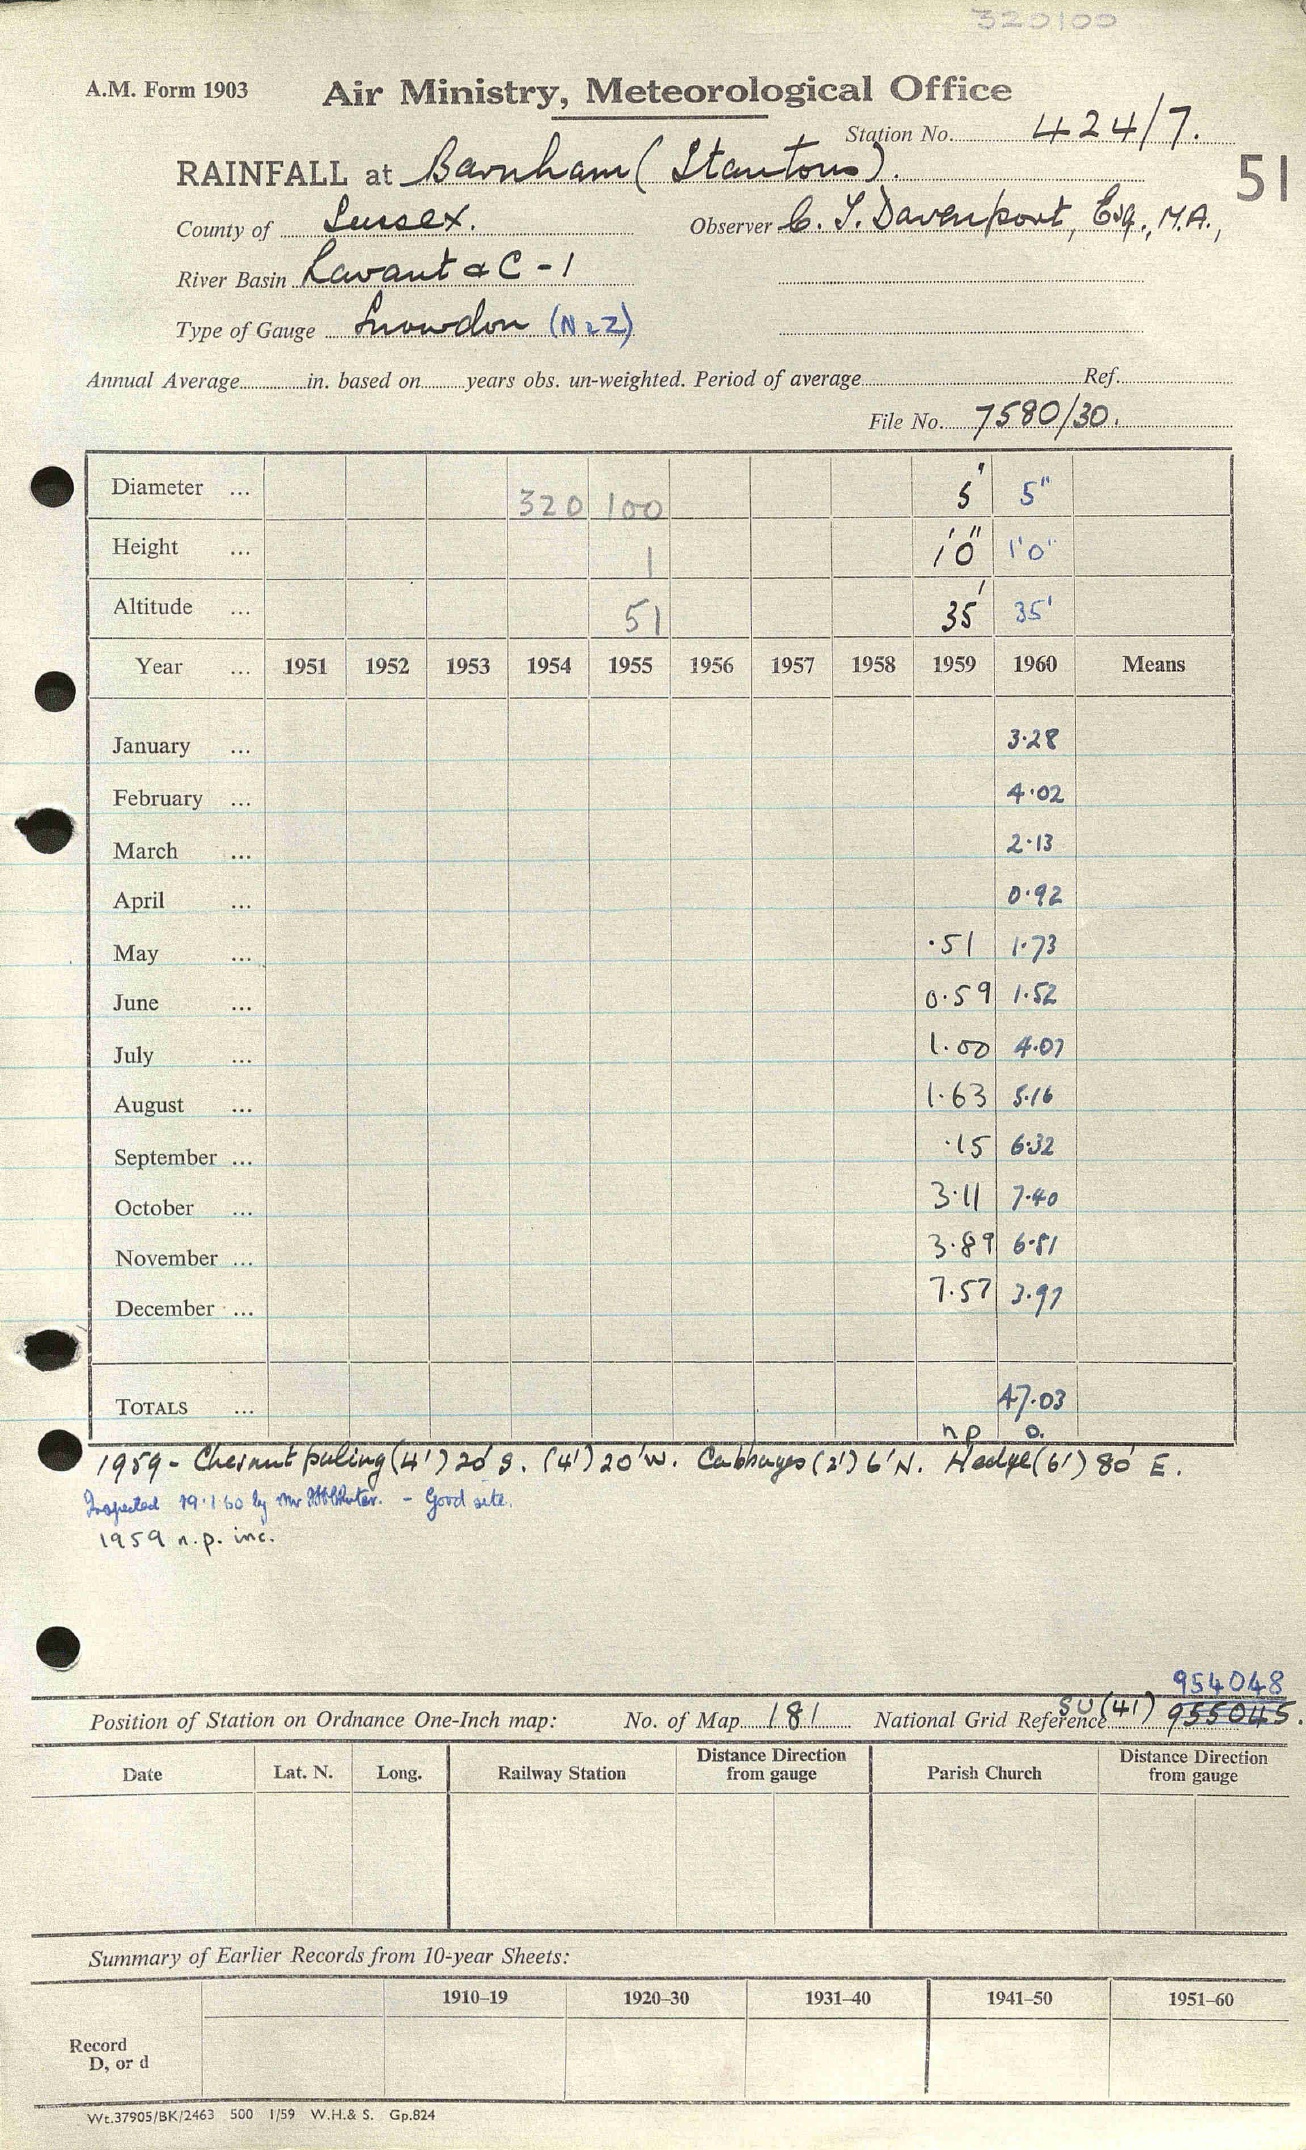 320100
A.M. Form 1903 Air Ministry, Meteorological Office
Station No. 424/7.
RAINFALL at Barnham (Stantons).
51
County of Sussex. Observer C. J. Davenport, Esq., M.A.,
River Basin Lavant & C - 1
Type of Gauge Snowdon (N & Z)
Annual Average in. based on years obs. un-weighted. Period of average Ref.
File No. 7580/30.
Diameter ... 320 100 5" 5"
Height ... 1 1'0" 1'0"
Altitude ... 51 35' 35'
Year ... 1951 1952 1953 1954 1955 1956 1957 1958 1959 1960 Means
January ... 3.28
February ... 4.02
March ... 2.13
April ... 0.92
May ... .51 1.73
June ... 0.59 1.52
July ... 1.00 4.07
August ... 1.63 5.16
September ... .15 6.32
October ... 3.11 7.40
November ... 3.89 6.81
December ... 7.57 3.97
TOTALS ... 47.03
n p o.
1959 - Chesnut paling (4') 20' S. (4') 20' W. Cabbages (2') 6' N. Hedge (6') 80' E.
Inspected 19.1.60 by Mr - Good site.
1959 n.p. inc.
954048
Position of Station on Ordnance One-Inch map: No. of Map 181 National Grid Reference SU (41) 955045.
Date Lat. N. Long. Railway Station Distance Direction from gauge Parish Church Distance Direction from gauge
Summary of Earlier Records from 10-year Sheets:
1910–19 1920–30 1931–40 1941–50 1951–60
Record
D, or d
Wt.37905/BK/2463 500 1/59 W.H.& S. Gp.824